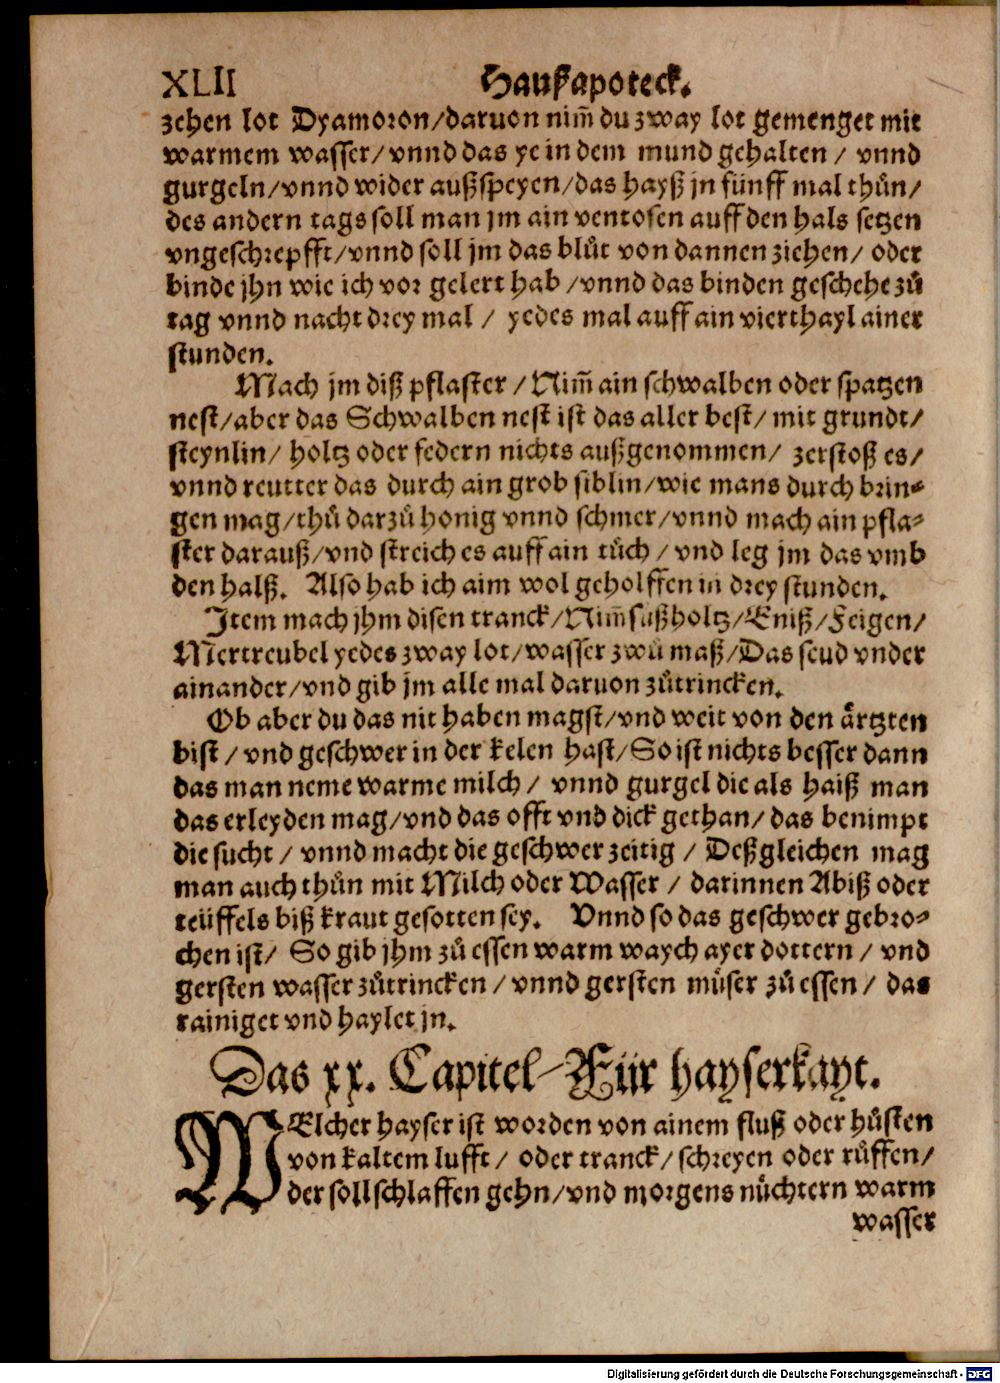 XLII Haußapoteck.
zehen lot Dyamoron/daruon nim̃ du zway lot gemenget mit
warmem wasser/vnnd das ye in dem mund gehalten / vnnd
gurgeln/vnnd wider außspeyen/das hayß jn fünff mal thůn/
des andern tags soll man jm ain ventosen auff den hals setzen
vngeschrepfft/vnnd soll jm das blůt von dannen ziehen/ oder
binde jhn wie ich vor gelert hab /vnnd das binden geschehe zů
tag vnnd nacht drey mal / yedes mal auff ain vierthayl ainer
stunden.
Mach jm diß pflaster /Nim̃ ain schwalben oder spatzen
nest/aber das Schwalben nest ist das aller best/ mit grundt/
steynlin/ holtz oder federn nichts außgenommen/ zerstoß es/
vnnd reutter das durch ain grob siblin/wie mans durch brin⸗
gen mag/thů darzů honig vnnd schmer/vnnd mach ain pfla⸗
ster darauß/vnd streich es auff ain tůch / vnd leg jm das vmb
den halß. Also hab ich aim wol geholffen in drey stunden.
Item mach jhm disen tranck/Nim̃ sůßholtz/Eniß/Feigen/
Mertreubel yedes zway lot/wasser zwů maß/Das seud vnder
ainander/vnd gib jm alle mal daruon zůtrincken.
Ob aber du das nit haben magst/vnd weit von den aͤrtzten
bist / vnd geschwer in der kelen hast/So ist nichts besser dann
das man neme warme milch / vnnd gurgel die als haiß man
das erleyden mag/vnd das offt vnd dick gethan/ das benimpt
die sucht / vnnd macht die geschwer zeitig / Deßgleichen mag
man auch thůn mit Milch oder Wasser / darinnen Abiß oder
teüffels biß kraut gesotten sey. Vnnd so das geschwer gebro⸗
chen ist/ So gib jhm zů essen warm waych ayer dottern / vnd
gersten wasser zůtrincken / vnnd gersten můser zů essen / das
rainiget vnd haylet jn.
Das xx. Capitel Für hayserkayt.
WElcher hayser ist worden von ainem fluß oder hůsten
von kaltem lufft / oder tranck/schreyen oder růffen/
der soll schlaffen gehn/vnd morgens nůchtern warm
wasser
Digitalisierung gefördert durch die Deutsche Forschungsgemeinschaft - DFG